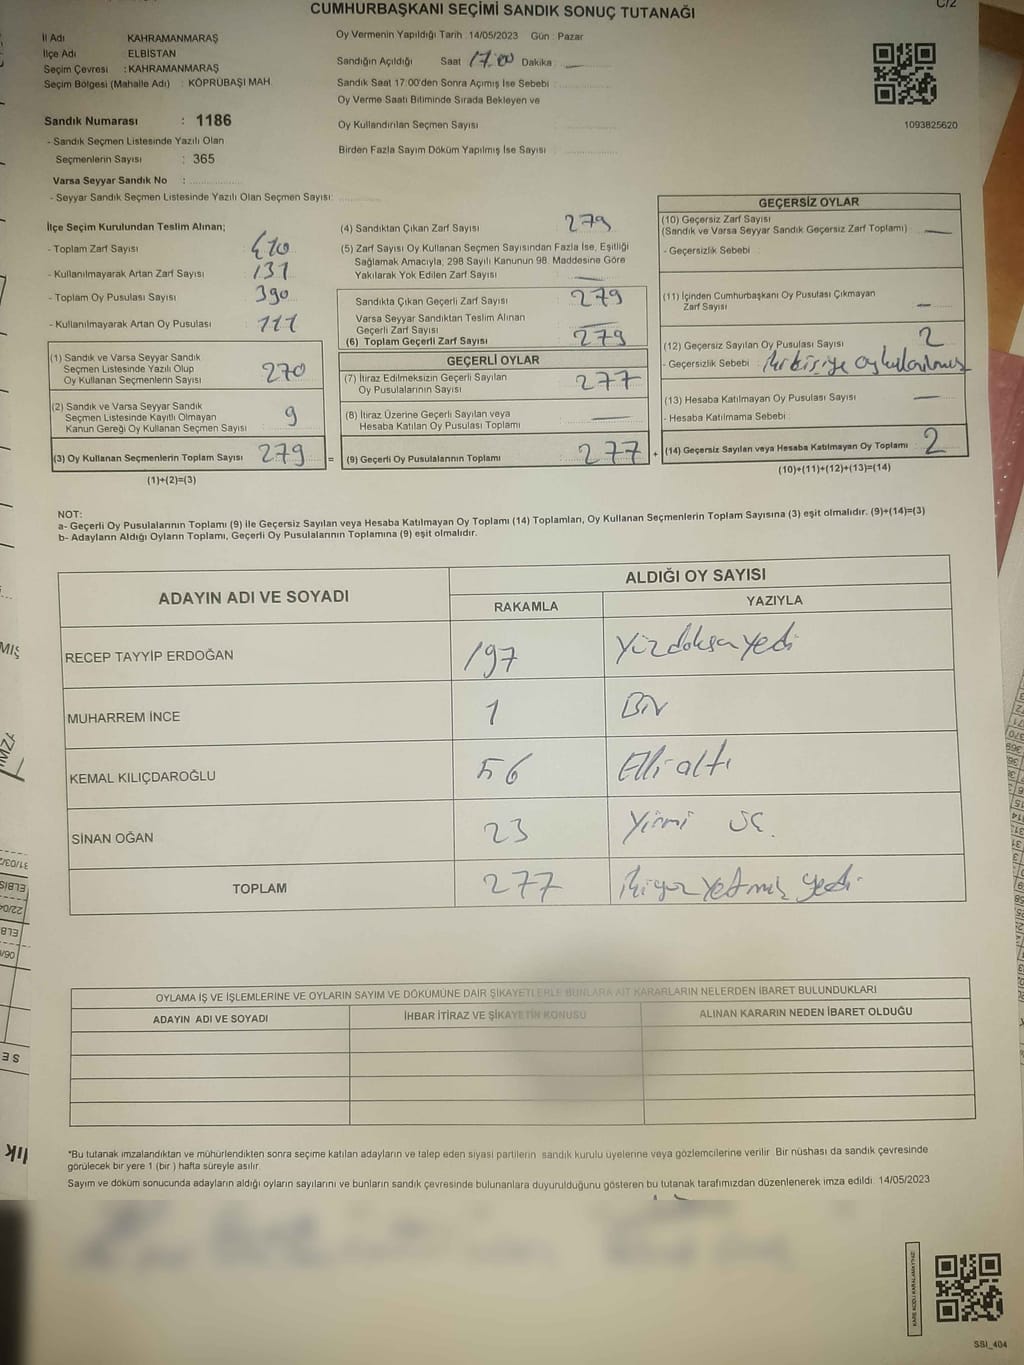 C/2
CUMHURBAŞKANI SEÇİMİ SANDIK SONUÇ TUTANAĞI
İl Adı KAHRAMANMARAŞ
İlçe Adı ELBİSTAN
Seçim Çevresi : KAHRAMANMARAŞ
Seçim Bölgesi (Mahalle Adı) : KÖPRÜBAŞI MAH.
Sandık Numarası : 1186
- Sandık Seçmen Listesinde Yazılı Olan
Seçmenlerin Sayısı : 365
Varsa Seyyar Sandık No :
- Seyyar Sandık Seçmen Listesinde Yazılı Olan Seçmen Sayısı:
Oy Vermenin Yapıldığı Tarih : 14/05/2023 Gün : Pazar
Sandığın Açıldığı Saat 17.00 Dakika :
Sandık Saat 17:00'den Sonra Açımış İse Sebebi :
Oy Verme Saati Bitiminde Sırada Bekleyen ve
Oy Kullandırılan Seçmen Sayısı
Birden Fazla Sayım Döküm Yapılmış İse Sayısı
1093825620
İlçe Seçim Kurulundan Teslim Alınan;
- Toplam Zarf Sayısı 410
- Kullanılmayarak Artan Zarf Sayısı 131
- Toplam Oy Pusulası Sayısı 390
- Kullanılmayarak Artan Oy Pusulası 111
(1) Sandık ve Varsa Seyyar Sandık
Seçmen Listesinde Yazılı Olup
Oy Kullanan Seçmenlerin Sayısı 270
(2) Sandık ve Varsa Seyyar Sandık
Seçmen Listesinde Kayıtlı Olmayan
Kanun Gereği Oy Kullanan Seçmen Sayısı 9
(3) Oy Kullanan Seçmenlerin Toplam Sayısı 279 =
(1)+(2)=(3)
(4) Sandıktan Çıkan Zarf Sayısı 279
(5) Zarf Sayısı Oy Kullanan Seçmen Sayısından Fazla İse, Eşitliği
Sağlamak Amacıyla, 298 Sayılı Kanunun 98. Maddesine Göre
Yakılarak Yok Edilen Zarf Sayısı
Sandıkta Çıkan Geçerli Zarf Sayısı 279
Varsa Seyyar Sandıktan Teslim Alınan
Geçerli Zarf Sayısı
(6) Toplam Geçerli Zarf Sayısı 279
GEÇERLİ OYLAR
(7) İtiraz Edilmeksizin Geçerli Sayılan
Oy Pusulalarının Sayısı 277
(8) İtiraz Üzerine Geçerli Sayılan veya
Hesaba Katılan Oy Pusulası Toplamı
(9) Geçerli Oy Pusulalarının Toplamı 277 +
GEÇERSİZ OYLAR
(10) Geçersiz Zarf Sayısı
(Sandık ve Varsa Seyyar Sandık Geçersiz Zarf Toplamı)
- Geçersizlik Sebebi
(11) İçinden Cumhurbaşkanı Oy Pusulası Çıkmayan
Zarf Sayısı
(12) Geçersiz Sayılan Oy Pusulası Sayısı 2
- Geçersizlik Sebebi iki kişiye oy kullanılmış
(13) Hesaba Katılmayan Oy Pusulası Sayısı
- Hesaba Katılmama Sebebi
(14) Geçersiz Sayılan veya Hesaba Katılmayan Oy Toplamı 2
(10)+(11)+(12)+(13)=(14)
NOT:
a- Geçerli Oy Pusulalarının Toplamı (9) ile Geçersiz Sayılan veya Hesaba Katılmayan Oy Toplamı (14) Toplamları, Oy Kullanan Seçmenlerin Toplam Sayısına (3) eşit olmalıdır. (9)+(14)=(3)
b- Adayların Aldığı Oyların Toplamı, Geçerli Oy Pusulalarının Toplamına (9) eşit olmalıdır.
ADAYIN ADI VE SOYADI ALDIĞI OY SAYISI
RAKAMLA YAZIYLA
RECEP TAYYİP ERDOĞAN 197 Yüzdoksanyedi
MUHARREM İNCE 1 Bir
KEMAL KILIÇDAROĞLU 56 Elli altı
SİNAN OĞAN 23 Yirmi üç.
TOPLAM 277 İkiyüz yetmiş yedi
OYLAMA İŞ VE İŞLEMLERİNE VE OYLARIN SAYIM VE DÖKÜMÜNE DAİR ŞİKAYETLERLE BUNLARA AİT KARARLARIN NELERDEN İBARET BULUNDUKLARI
ADAYIN ADI VE SOYADI İHBAR İTİRAZ VE ŞİKAYETİN KONUSU ALINAN KARARIN NEDEN İBARET OLDUĞU
*Bu tutanak imzalandıktan ve mühürlendikten sonra seçime katılan adayların ve talep eden siyasi partilerin sandık kurulu üyelerine veya gözlemcilerine verilir. Bir nüshası da sandık çevresinde
görülecek bir yere 1 (bir) hafta süreyle asılır.
Sayım ve döküm sonucunda adayların aldığı oyların sayılarını ve bunların sandık çevresinde bulunanlara duyurulduğunu gösteren bu tutanak tarafımızdan düzenlenerek imza edildi. 14/05/2023
KARE KODU KARALAMAYINIZ!
SSI_404